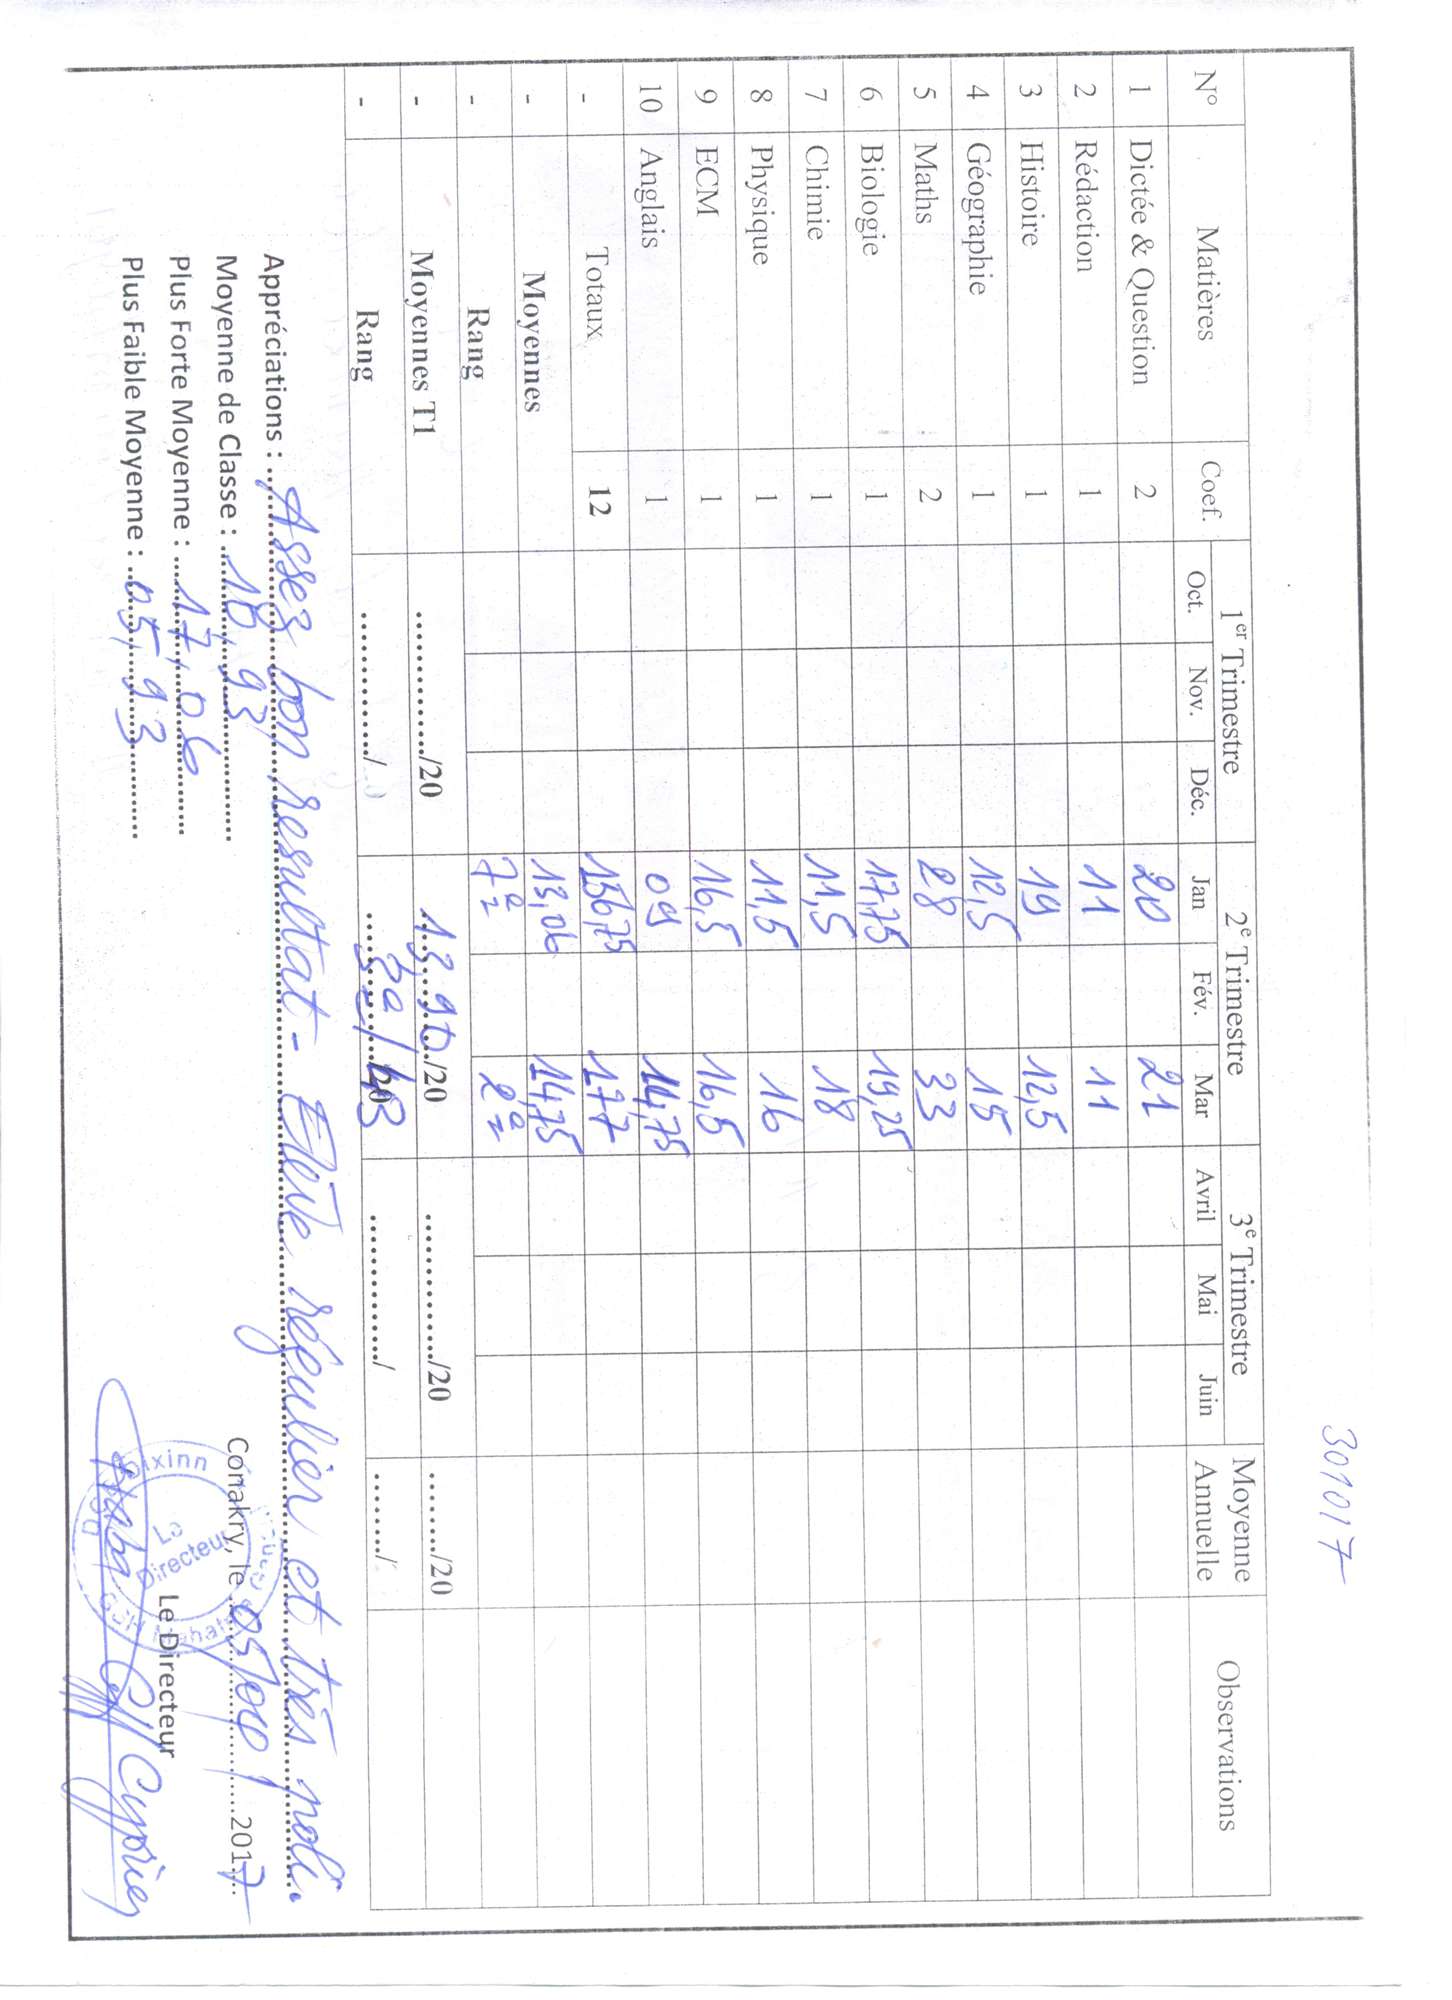 301017
N° Matières Coef. 1er Trimestre 2e Trimestre 3e Trimestre Moyenne Annuelle Observations
Oct. Nov. Déc. Jan Fév. Mar Avril Mai Juin
1 Dictée & Question 2 20 21
2 Rédaction 1 11 11
3 Histoire 1 19 12,5
4 Géographie 1 12,5 15
5 Maths 2 28 33
6 Biologie 1 17,75 19,25
7 Chimie 1 11,5 18
8 Physique 1 11,5 16
9 ECM 1 16,5 16,5
10 Anglais 1 09 14,75
- Totaux 12 156,75 177
- Moyennes 13,06 14,75
- Rang 7e 2e
- Moyennes T1 ............../20 13,90/20 ............../20 ......../20
- Rang ............../ 3e/ ............../ ......../
Appréciations : Assez bon resultat - Elève régulier et très poli.
Moyenne de Classe : 10,93
Plus Forte Moyenne : 17,06
Plus Faible Moyenne : 05,93
Conakry, le 05/04/2017
Le Directeur
Dixinn
Le
Directeur
Cyprien